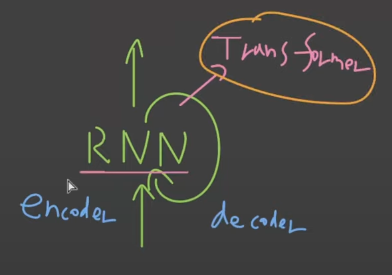 Transformer
RNN
encoder
decoder